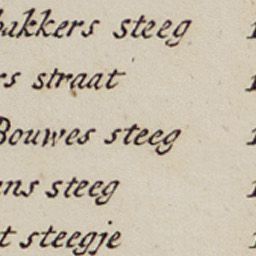 bakkers steeg
rs straat
Bouwes steeg
ens steeg
t steegje